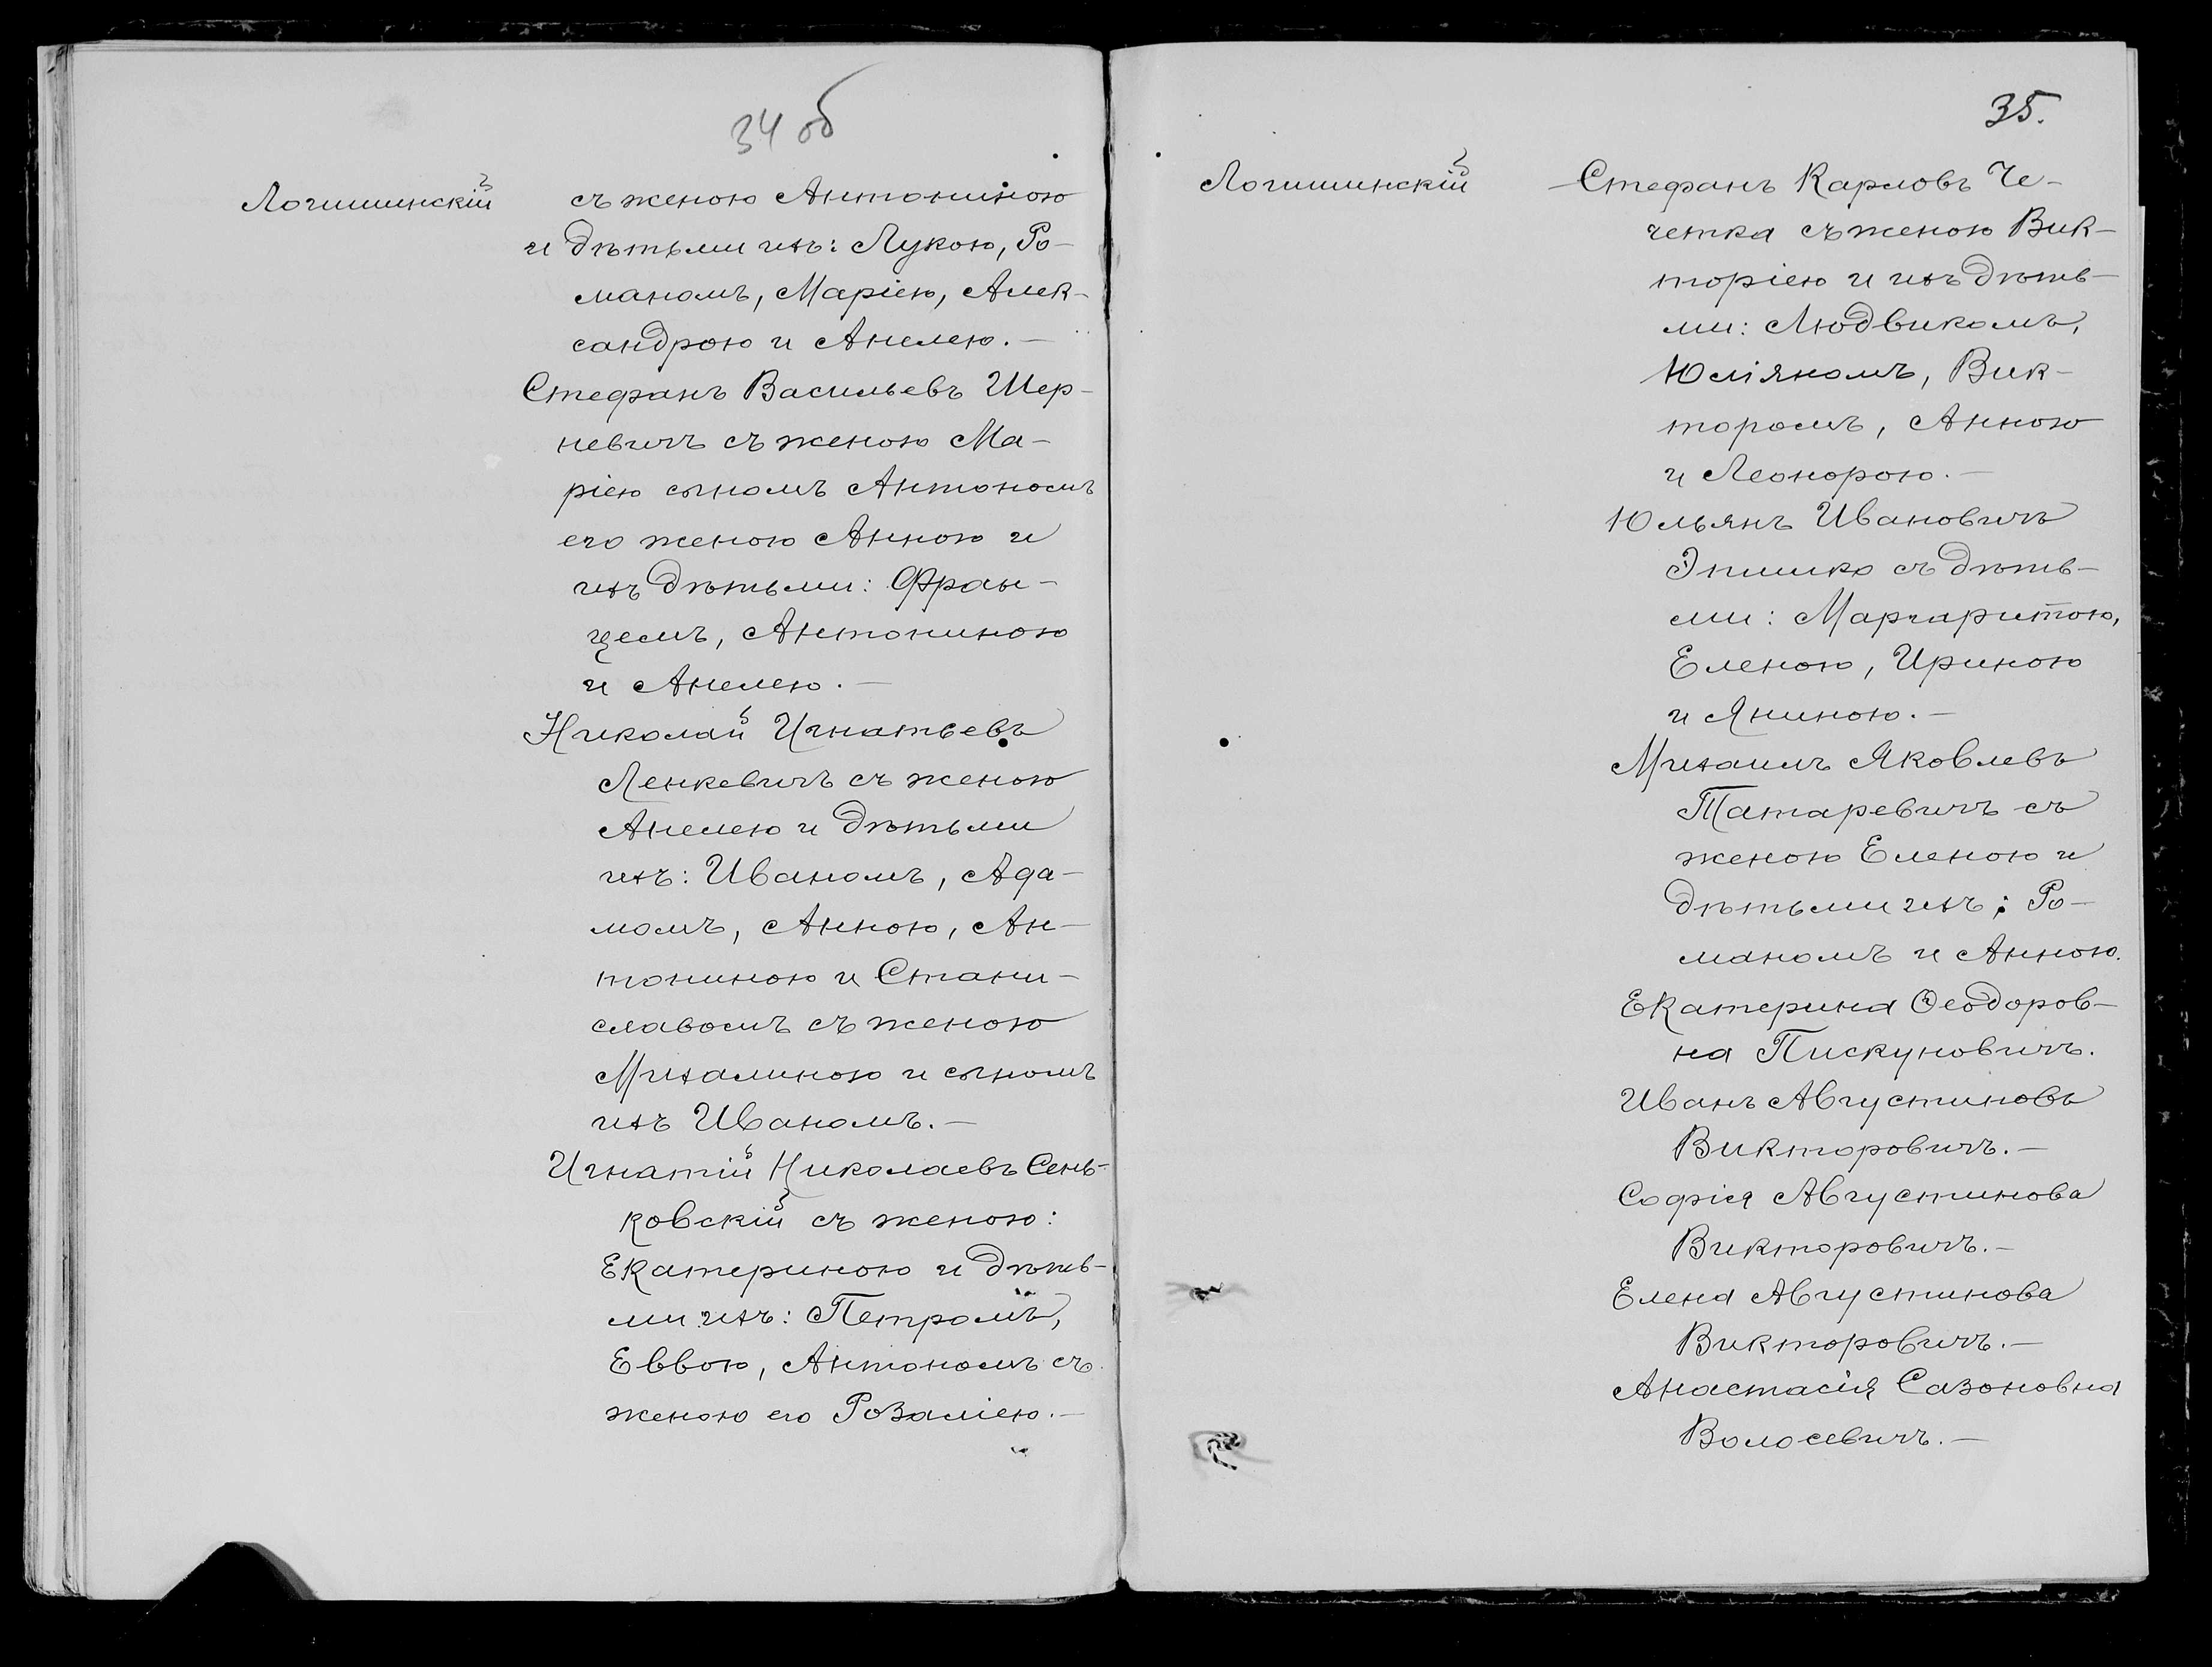 34 об
Логишинскій
съ женою Антониною
и дѣтьми ихъ: Лукою, Ро-
маномъ, Маріею, Алек-
сандрою и Анелею. —
Стефанъ Васильевъ Шер-
невичъ съ женою Ма-
ріею сыномъ Антономъ
его женою Анною и
ихъ дѣтьми: Фран-
цемъ, Антониною
и Анелею. —
Николай Игнатьевъ
Ленкевичъ съ женою
Анелею и дѣтьми
ихъ: Иваномъ, Ада-
момъ, Анною, Ан-
тониною и Стани-
славомъ съ женою
Михалиною и сыномъ
ихъ Иваномъ. —
Игнатій Николаевъ Сень-
ковскій съ женою:
Екатериною и дѣть-
ми ихъ: Петромъ,
Еввою, Антономъ съ
женою его Розаліею. —
35.
Логишинскій
Стефанъ Карловъ Че-
четка съ женою Вик-
торіею и ихъ дѣть-
ми: Людвикомъ,
Юліяномъ, Вик-
торомъ, Анною
и Леонорою. —
Юльянъ Ивановичъ
Эпимко съ дѣть-
ми: Маргаритою,
Еленою, Ириною
и Яниною. —
Михаилъ Яковлевъ
Татаревичъ съ
женою Еленою и
дѣтьми ихъ: Ро-
маномъ и Анною.
Екатерина Ѳеодоров-
на Пискуновичъ.
Иванъ Августиновъ
Викторовичъ. —
Софія Августинова
Викторовичъ. —
Елена Августинова
Викторовичъ. —
Анастасія Сазоновна
Волосевичъ. —